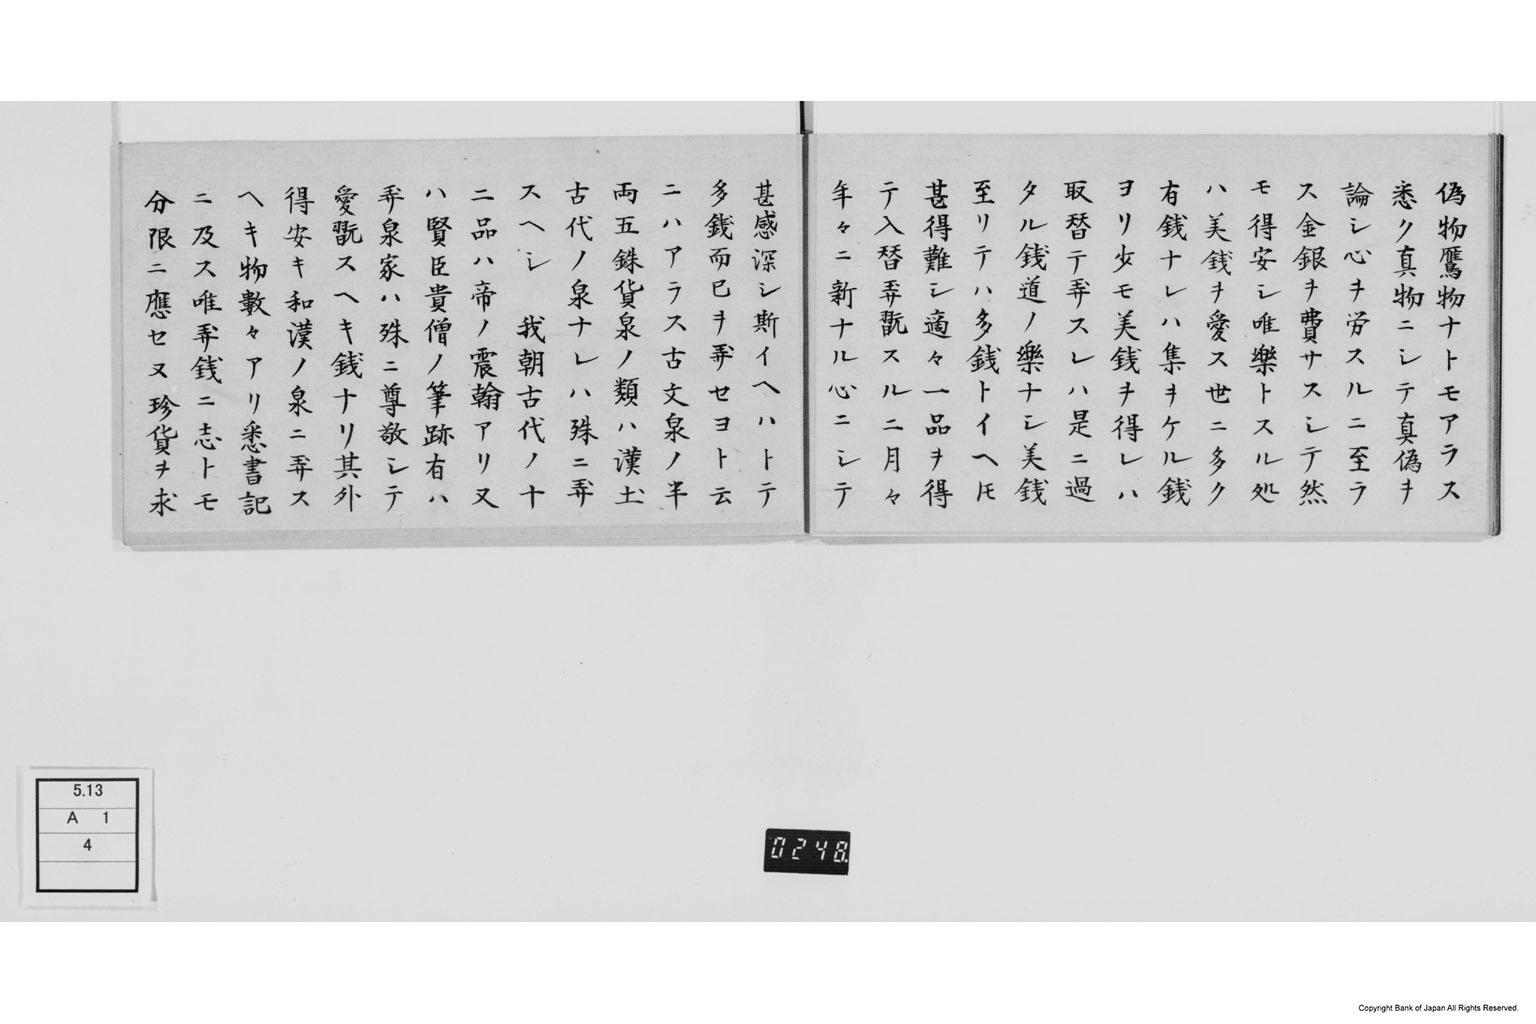 偽物鴈物ナトモアラス
悉ク真物ニシテ真偽ヲ
論シ心ヲ労スルニ至ラ
ス金銀ヲ費サスシテ然
モ得安シ唯樂トスル処
ハ美銭ヲ愛ス世ニ多ク
有銭ナレハ集ヲケル銭
ヨリ少モ美銭ヲ得レハ
取替テ弄スレハ是ニ過
タル銭道ノ樂ナシ美銭
至リテハ多銭トイヘ𪜈
甚得難シ適々一品ヲ得
テ入替弄翫スルニ月々
年々ニ新ナル心ニシテ
甚感深シ斯イヘハトテ
多銭而已ヲ弄セヨト云
ニハアラス古文泉ノ半
両五銖貨泉ノ類ハ漢𡈽
古代ノ泉ナレハ殊ニ弄
スヘシ　我朝古代ノ十
二品ハ帝ノ震翰アリ又
ハ賢臣貴僧ノ筆跡有ハ
弄泉家ハ殊ニ尊敬シテ
愛翫スヘキ銭ナリ其外
得安キ和漢ノ泉ニ弄ス
ヘキ物數々アリ悉書記
ニ及ス唯弄銭ニ志トモ
分限ニ應セヌ珍貨ヲ求
5.13
A 1
4
0248.
Copyright Bank of Japan All Rights Reserved.